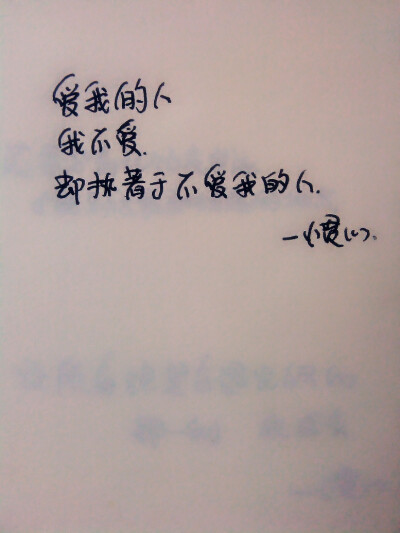 爱我的人
我不爱.
却执著于不爱我的人.
—惯心.